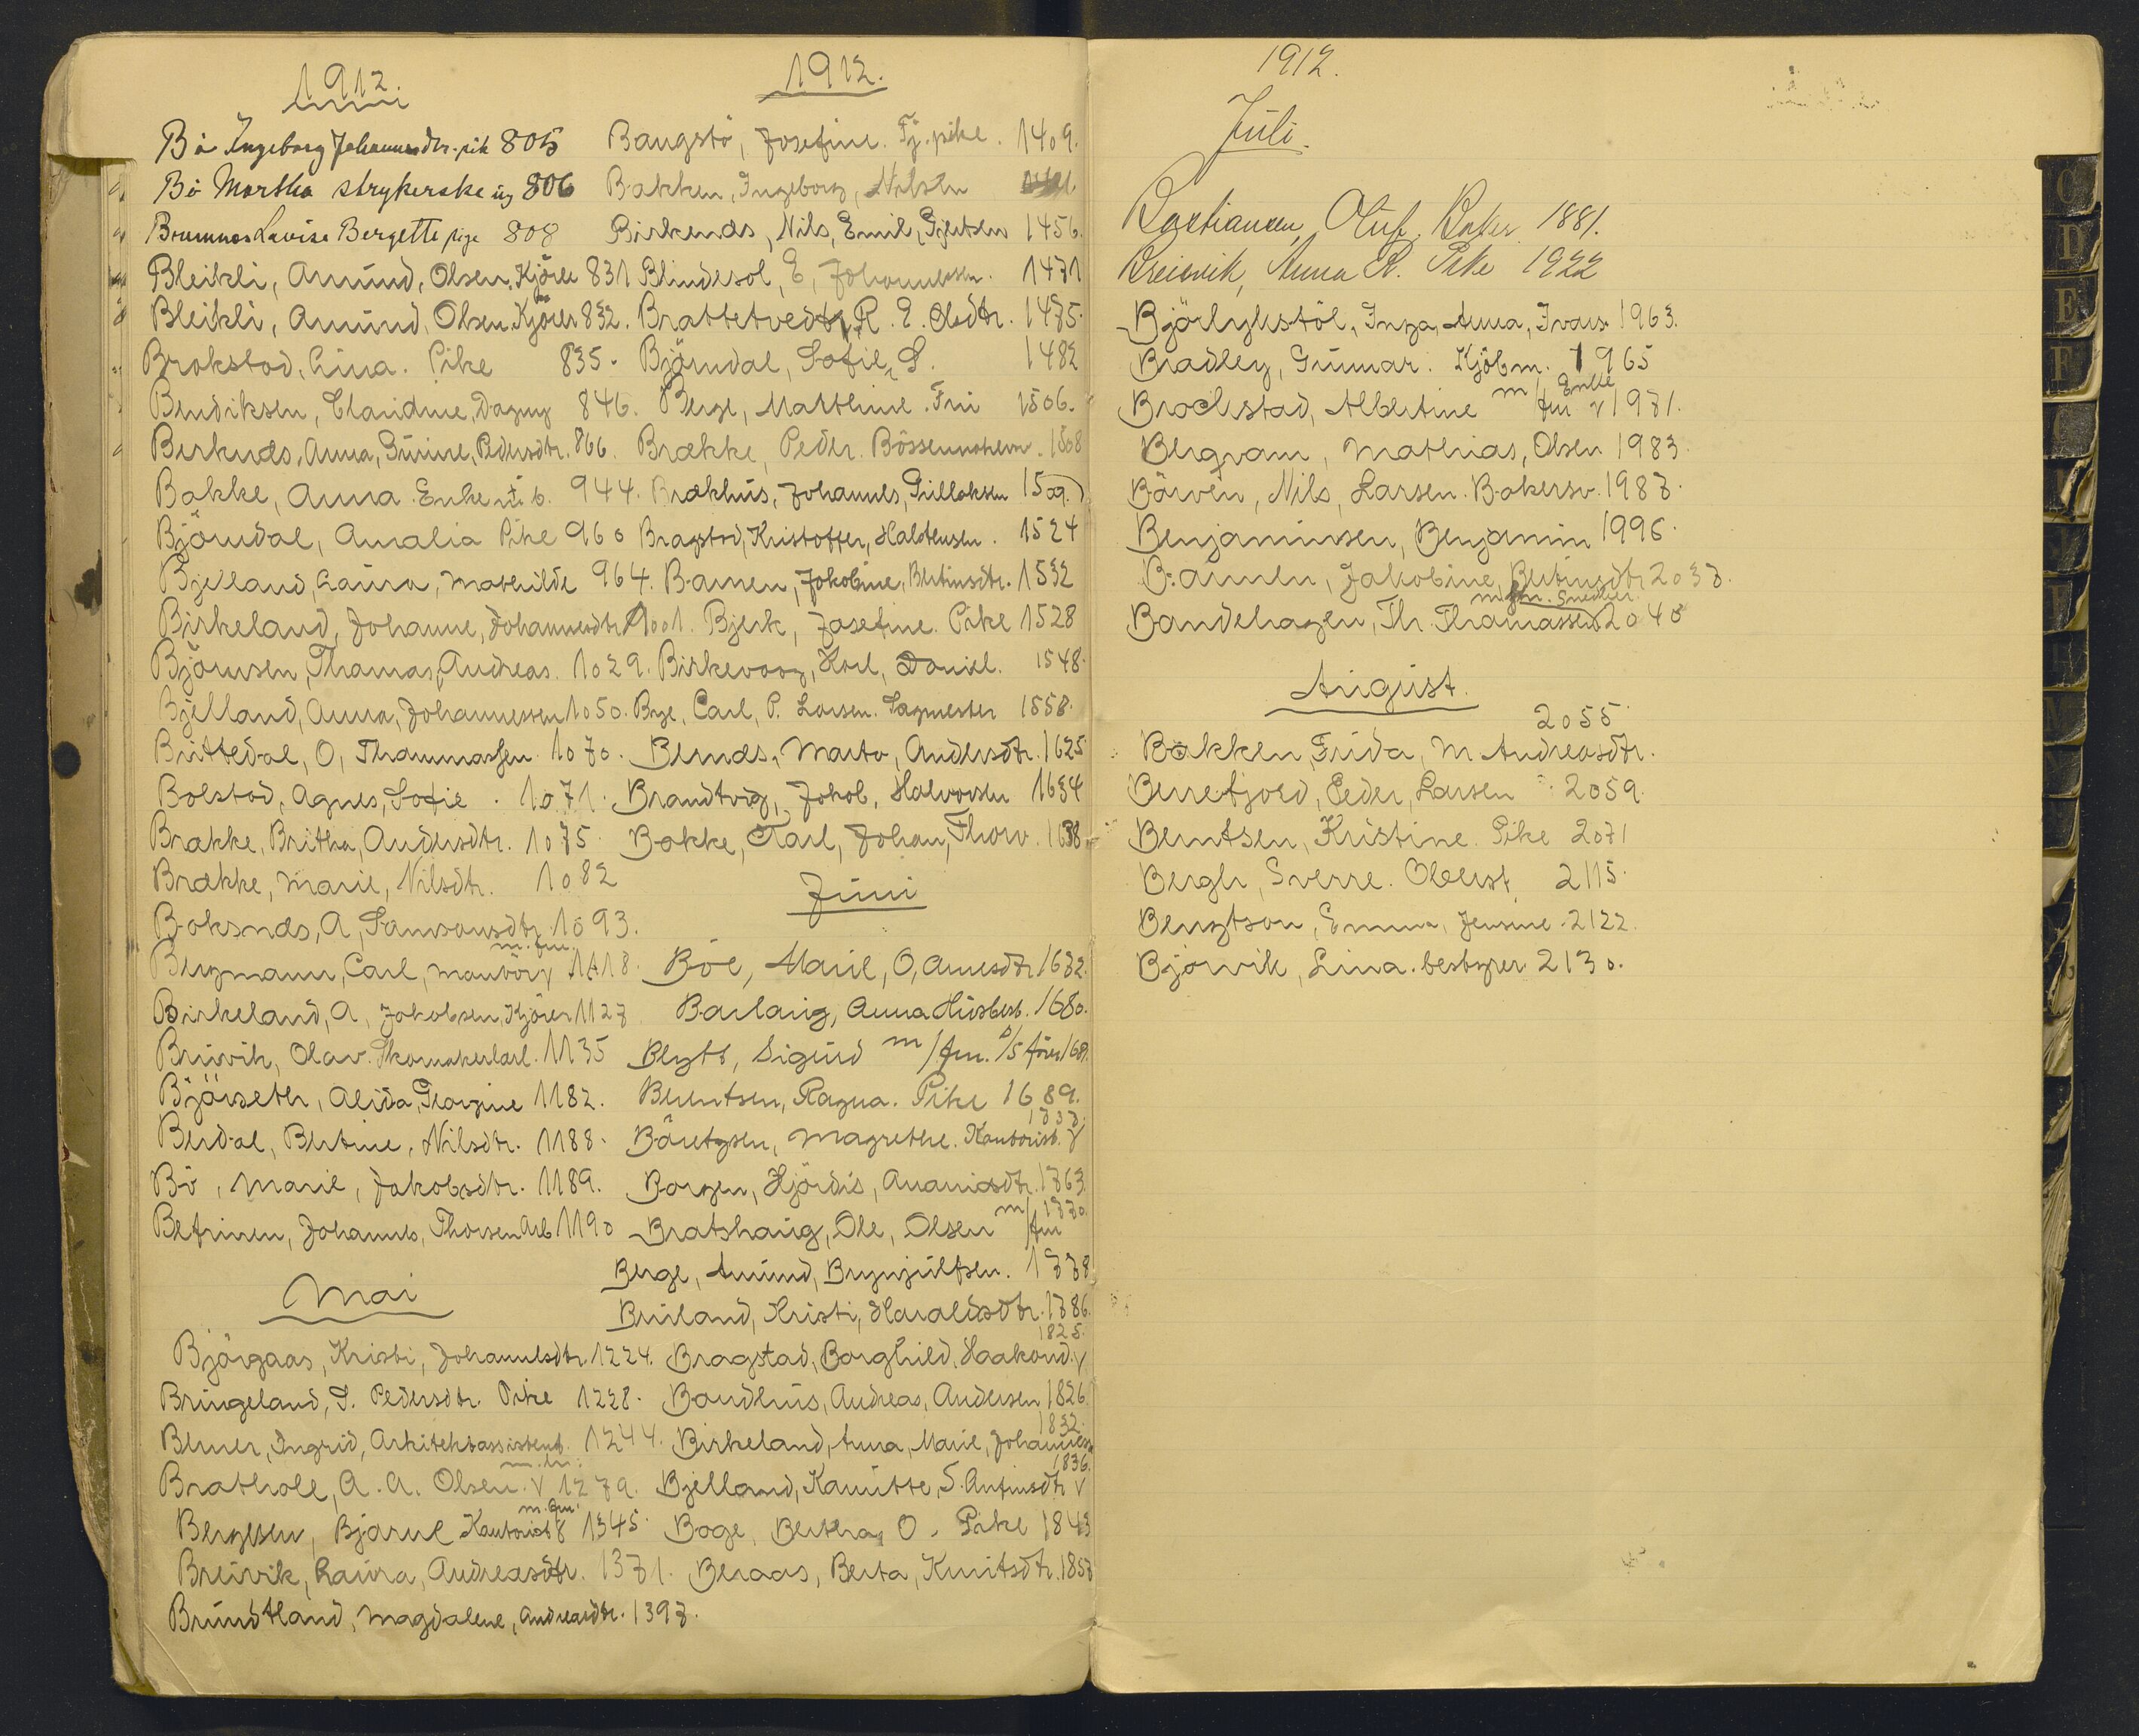 1912.
Bö Ingeborg Johannesdtr. pik 805
Bö Martha strykerske ug 806
Brumnes Lovise Bergette pige 808
Bleikli, Amund, Olsen, Kjörer 831
Bleikli, Amund, Olsen, Kjörer 832.
Brokstad, Lina. Pike 835.
Bendiksen, Claudine, Dagny 846.
Berknes, Anna, Gurine, Pedersdtr. 866.
Bakke, Anna. Enke 944.
Björndal, Amalia Pike 960
Bjelland, Laura, Mathilde 964.
Birkeland, Johanne, Johannesdtr 1001.
Björnsen, Thomas, Andreas. 1029.
Bjelland, Anna, Johannessen 1050.
Brittedal, O, Thommassen 1070.
Bolstad, Agnes, Sofie. 1071.
Brække, Britha, Andersdtr. 1075.
Brække, Marie, Nilsdtr. 1082
Boksnes, A, Samsonsdtr. 1093.
m. fm.
Bergmann, Carl, 1118.
Birkeland, A, Jakobsen, Kjörer 1127
Bruvik, Olav. Skomakerlærl. 1135
Björseth, Alida, Georgine 1182.
Berdal, Bertine, Nilsdtr. 1188.
Bö, Marie, Jakobsdtr. 1189.
Betrinen, Johannes, Thorsen Arb 1190
Mai
Björgaas, Kristi, Johannesdtr. 1224.
Bringeland, S. Pedersdtr. Pike 1228.
Berner, Ingrid, Arkitektassistent. 1244.
Brathole, A. A. Olsen. 1279.
m. fm.
Bergesen, Bjarne Kontorist 1345.
Breivik, Laura, Andreasdtr. 1371.
Brundtland, Magdalene, Andreasdtr. 1397.
1912.
Baugstö, Josefine. Tj. pike. 1409.
Bakken, Ingeborg, Nilsen
Birkenes, Nils, Emil, Gjertsen 1456.
Blindesol, E, Johannessen. 1471
Brattetvedt, R. E. Olsdtr. 1475.
Björndal, Sofie, S. 1482
Berge, Matthine. Fru 1506.
Brække, Peder. Bössemaker. 1508
Brækhus, Johannes, Gullaksen 1509.
Bragstad, Kristoffer, Haldensen. 1524
Bamen, Jakobine, Bertinsdtr. 1532
Bjerk, Josefine. Pike 1528
Birkevaag, Karl, Daniel. 1548.
Brge, Carl, P. Larsen. Sagmester 1558.
Bernes, Marta, Andersdtr. 1625
Brandtvig, Jakob, Halvorsen 1634
Bakke, Karl, Johan, Thorv. 1638
Juni
Böe, Marie, O, Arnesdtr 1672.
Barlaug, Anna Husbest. 1680.
Blytt, Sigurd m/fm. 168
Berntsen, Ragna. Pike 1689.
1737.
Böretzsen, Magrethe. Kontorist. V
Borgen, Hjördis, Ananiasdtr. 1763.
m/ 1770.
Bratshaug, Ole, Olsen fm
Berge, Amund, Brynjulfsen. 1778
Bruland, Kristi, Haraldsdtr. 1786.
1825.
Bragstad, Borghild, Haakond. V
Bondhus, Andreas, Andersen 1826
1832.
Birkeland, Anna, Marie, Johannes
1836.
Bjelland, Kamitte, S. Antinsdtr V
Boge, Bertha, O. Pike 1843
Beraas, Berta, Knutsdtr. 1857
1912.
Juli.
Bastiansen, Oluf. Baker 1881.
Breisvik, Anna R. Pike 1922
Björlykstöl, Inga, Anna, Ivars. 1963.
Bradley, Gunnar. Kjöbm. 1965
Enke
Brockstad, Albertine m/fm V 1971.
Bergram, Mathias, Olsen 1983.
Börven, Nils, Larsen. Bakersv. 1987.
Benjaminsen, Benjamin 1996.
Bamen, Jakobine, Bertinsdtr 2037.
m. fm. Snedker
Bandehagen, Th. Thomassen 2045
August.
2055.
Bakken, Frida, M Andreasdtr.
Berrefjord, Peder, Larsen 2059.
Berntsen, Kristine. Pike 2071
Bergh, Sverre. Oberst 2115.
Bengtson, Emma, Jensine. 2122.
Björvik, Lina. bestyrer. 2130.
C
D
E
F
M